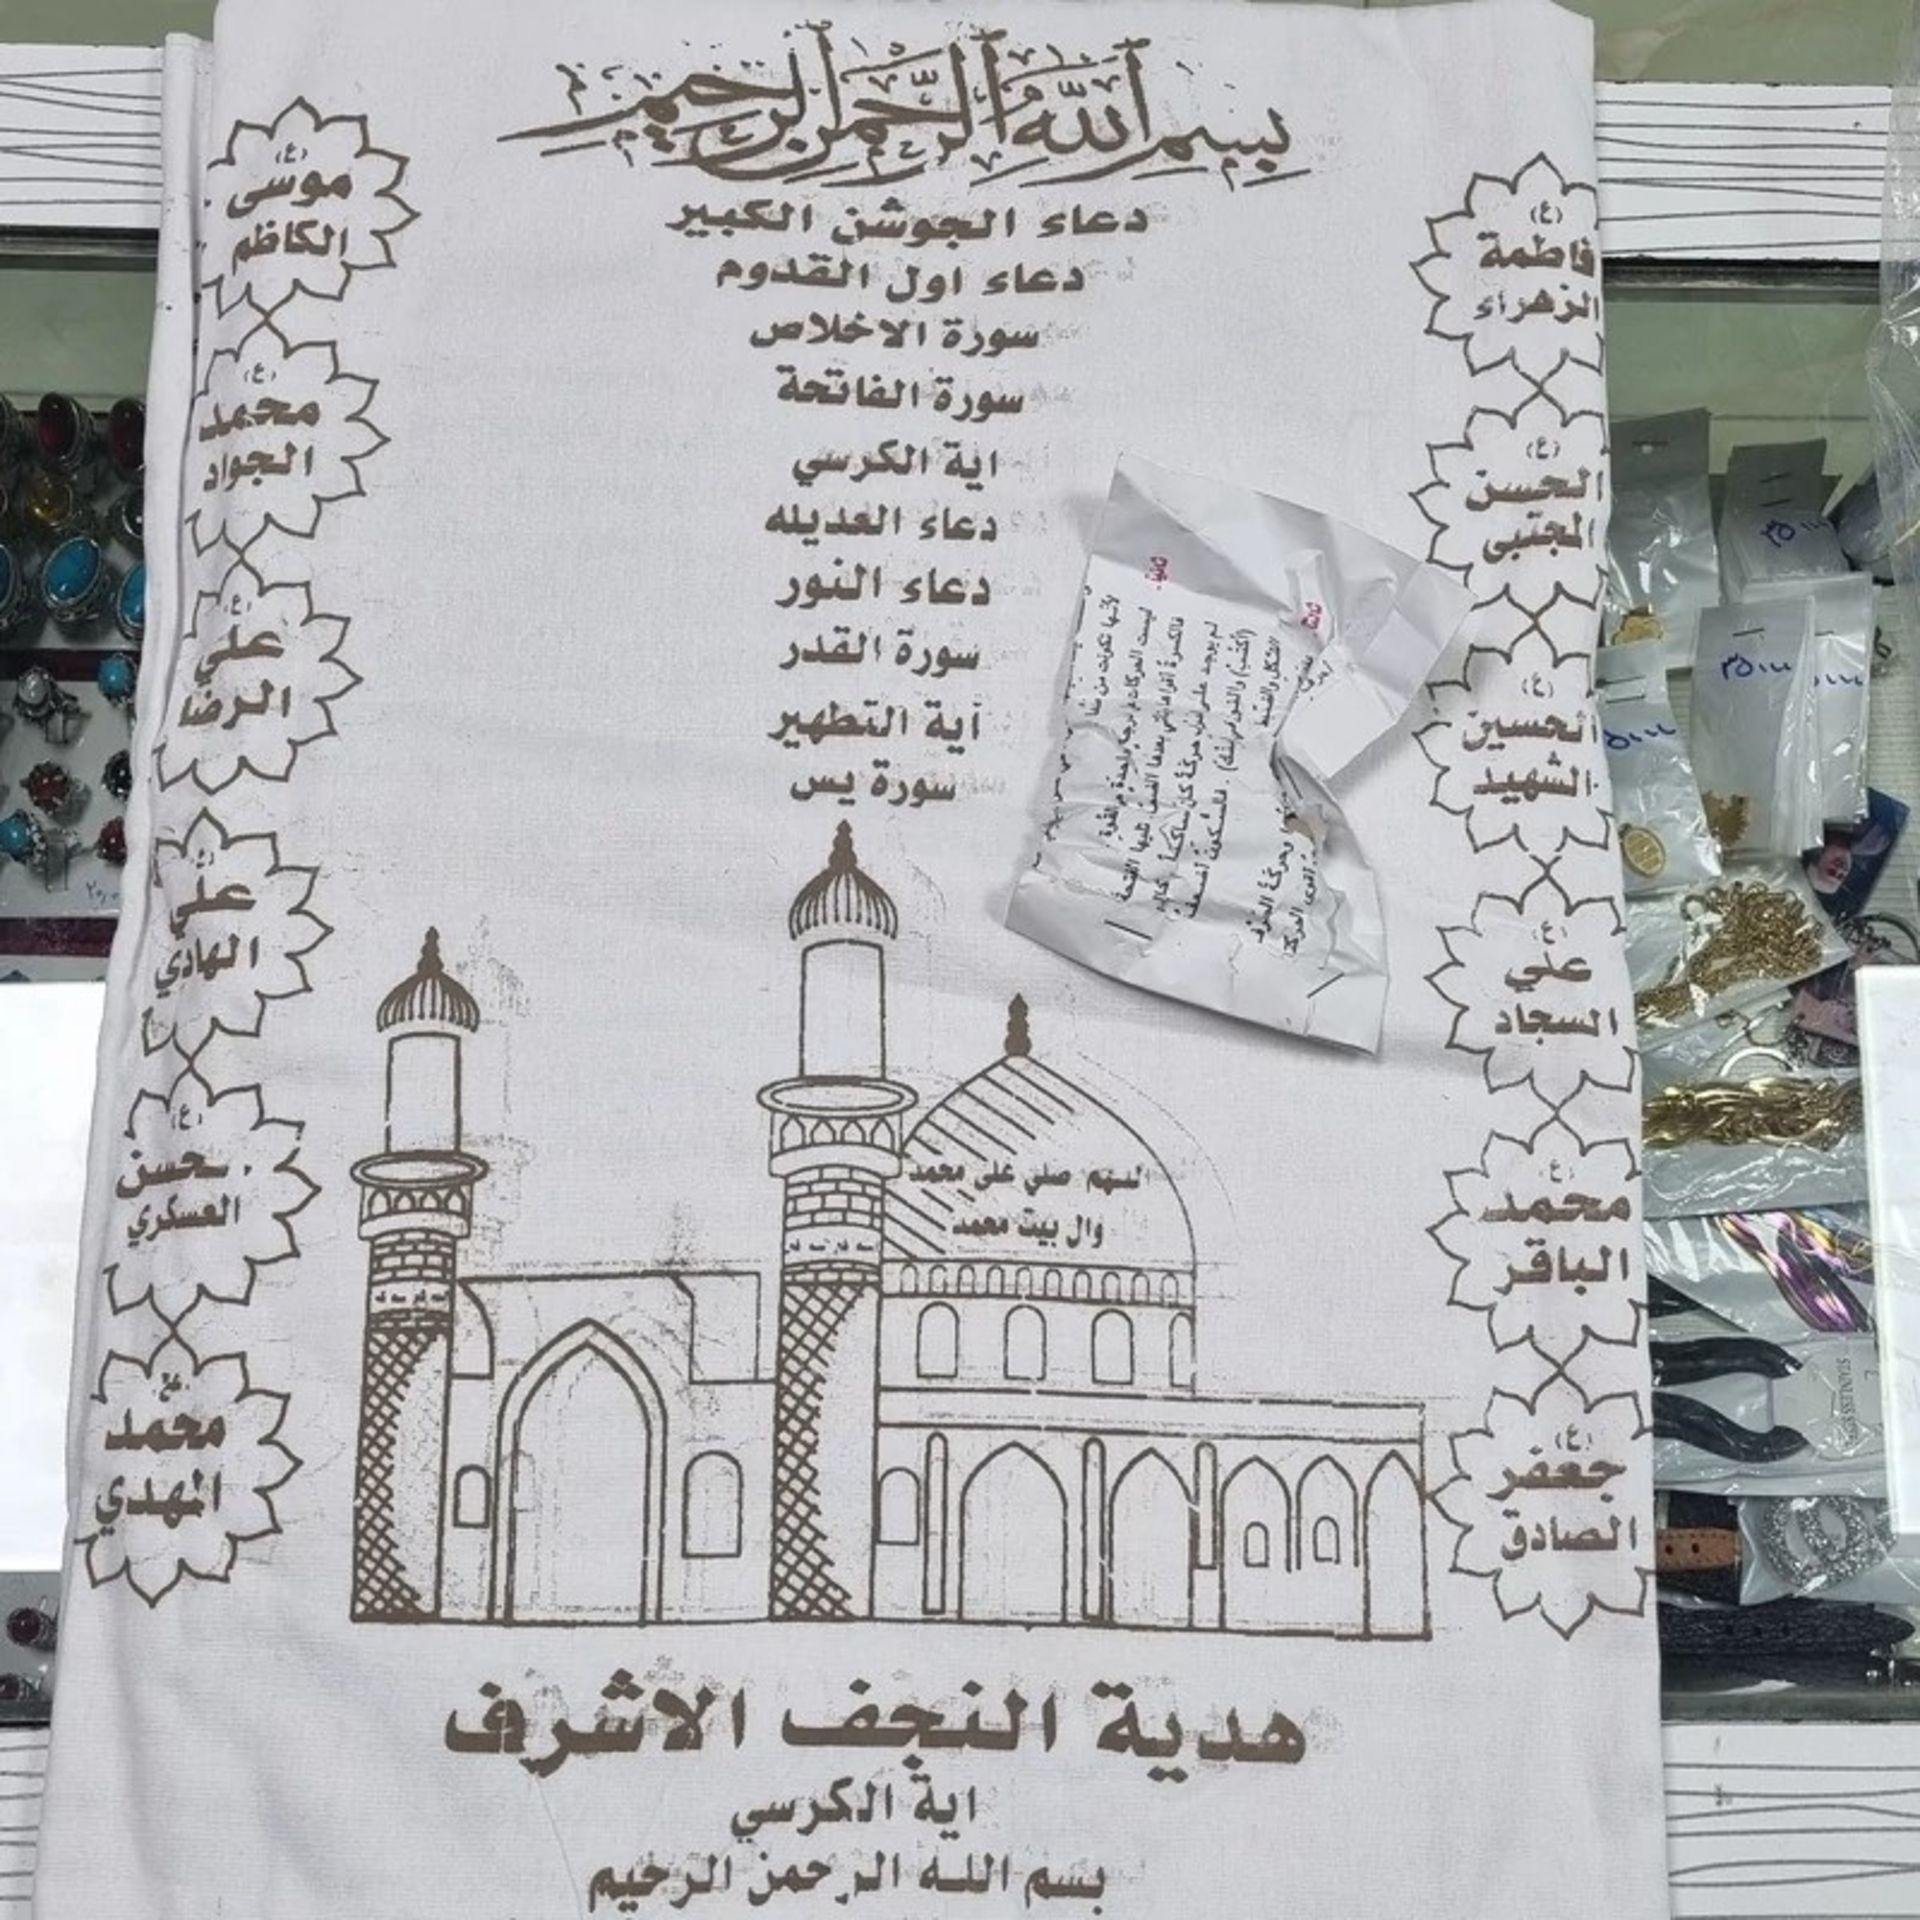 بسم الله الرحمن الرحيم
دعاء الجوشن الكبير
دعاء اول القدوم
سورة الاخلاص
سورة الفاتحة
اية الكرسي
دعاء العديله
دعاء النور
سورة القدر
أية التطهير
سورة يس
(ع)
فاطمة
الزهراء
(ع)
الحسن
المجتبى
(ع)
الحسين
الشهيد
(ع)
علي
السجاد
(ع)
محمد
الباقر
(ع)
جعفر
الصادق
(ع)
موسى
الكاظم
(ع)
محمد
الجواد
(ع)
علي
الرضا
(ع)
علي
الهادي
(ع)
حسن
العسكري
عج
محمد
المهدي
اللهم صلي على محمد
وال بيت محمد
هدية النجف الاشرف
اية الكرسي
بسم الله الرحمن الرحيم